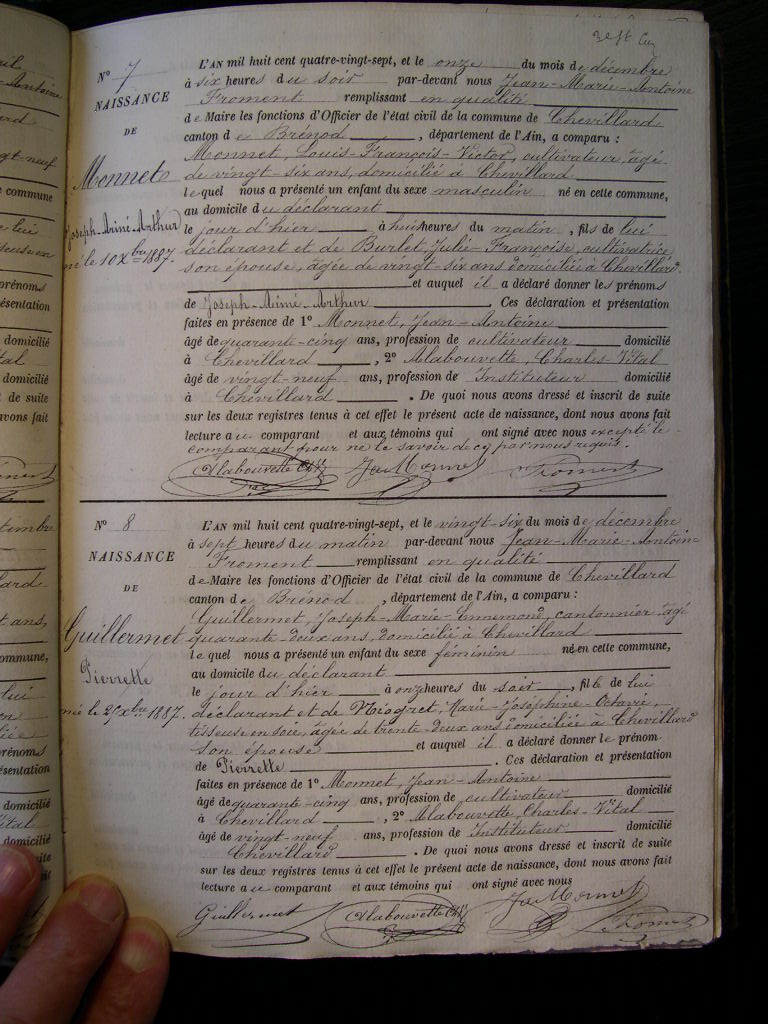 N° 7
NAISSANCE
DE
Monnet
Joseph-Aimé-Arthur
né le 10 Xbre 1887.
L'AN mil huit cent quatre-vingt-sept, et le onze du mois de décembre
à six heures du soir par-devant nous Jean-Marie-Antoine
Froment remplissant en qualité
de Maire les fonctions d'Officier de l'état civil de la commune de Chevillard
canton de Brénod, département de l'Ain, a comparu :
Monnet, Louis-François-Victor, cultivateur, agé
de vingt-six ans, domicilié à Chevillard
lequel nous a présenté un enfant du sexe masculin né en cette commune,
au domicile du déclarant
le jour d'hier à huit heures du matin, fils de lui
déclarant et de Burlet Julie-Françoise, cultivatrice
son épouse, agée de vingt-six ans domiciliée à Chevillard.
et auquel il a déclaré donner les prénoms
de Joseph-Aimé-Arthur. Ces déclaration et présentation
faites en présence de 1° Monnet, Jean-Antoine
âgé de quarante-cinq ans, profession de cultivateur domicilié
à Chevillard, 2° Alabouvette, Charles-Vital
âgé de vingt-neuf ans, profession de Instituteur domicilié
à Chevillard. De quoi nous avons dressé et inscrit de suite
sur les deux registres tenus à cet effet le présent acte de naissance, dont nous avons fait
lecture au comparant et aux témoins qui ont signé avec nous excepté le
comparant pour ne le savoir de ce par nous requis.
Alabouvette Ch. V. Ja Monnet Froment
N° 8
NAISSANCE
DE
Guillermet
Pierrette
née le 25 Xbre 1887.
L'AN mil huit cent quatre-vingt-sept, et le vingt-six du mois de décembre
à sept heures du matin par-devant nous Jean-Marie-Antoine
Froment remplissant en qualité
de Maire les fonctions d'Officier de l'état civil de la commune de Chevillard
canton de Brénod, département de l'Ain, a comparu :
Guillermet, Joseph-Marie-Ennemond, cantonnier agé
quarante-deux ans, domicilié à Chevillard
lequel nous a présenté un enfant du sexe féminin né en cette commune,
au domicile du déclarant
le jour d'hier à onze heures du soir, fille de lui
déclarant et de Niogret, Marie-Joséphine-Octavie,
tisseuse en soie, agée de trente-deux ans domiciliée à Chevillard
son épouse et auquel il a déclaré donner le prénom
de Pierrette. Ces déclaration et présentation
faites en présence de 1° Monnet, Jean-Antoine
âgé de quarante-cinq ans, profession de cultivateur domicilié
à Chevillard, 2° Alabouvette, Charles-Vital
âgé de vingt-neuf ans, profession de Instituteur domicilié
Chevillard. De quoi nous avons dressé et inscrit de suite
sur les deux registres tenus à cet effet le présent acte de naissance, dont nous avons fait
lecture au comparant et aux témoins qui ont signé avec nous
Guillermet Alabouvette Ch. V. Ja Monnet Froment